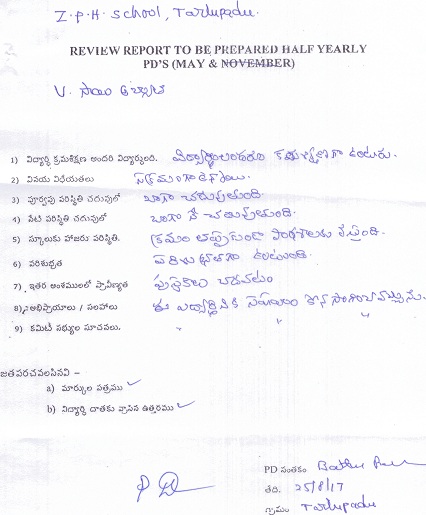 Z.P.H. School, Tarlupadu.
REVIEW REPORT TO BE PREPARED HALF YEARLY
PD'S (MAY & NOVEMBER)
V. సాయి
1) విద్యార్థి క్రమశిక్షణ అందరి విద్యార్థులది. విద్యార్థులందరూ క్రమశిక్షణగా ఉంటురు.
2) వినయ విధేయతలు
3) పూర్వపు పరిస్థితి చదువులో బాగా చదువుతుంది
4) నేటి పరిస్థితి చదువులో బాగా నే చదువుతుంది.
5) స్కూలుకు హాజరు పరిస్థితి. క్రమం తప్పకుండా
6) పరిశుభ్రత పరిశుభ్రంగా ఉంటుంది
7) ఇతర అంశములలో ప్రావీణ్యత పుస్తకాలు చదవటం
8) అభిప్రాయాలు / సలహాలు ఈ విద్యార్థినికి సహాయం కొనసాగించవచ్చును.
9) కమిటీ సభ్యుల సూచనలు. " " "
జతపరచవలసినవి –
a) మార్కుల పత్రము ✓
b) విద్యార్థి దాతకు వ్రాసిన ఉత్తరము ✓
PD సంతకం
తేది. 25/8/17
గ్రామం Tarlupadu